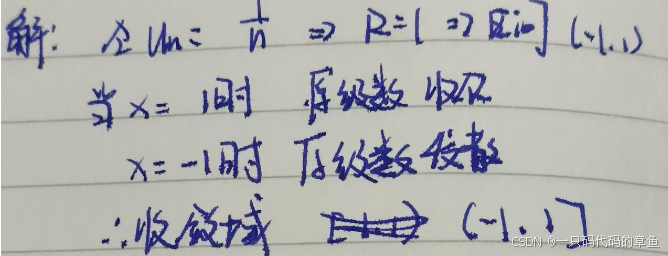 解: 令 Un = 1/n ⇒ R=1 ⇒ 区间 (-1,1)
当 x = 1时 原级数 收敛
x = -1时 原级数 发散
∴ 收敛域 (-1,1]
CSDN @一只码代码的章鱼